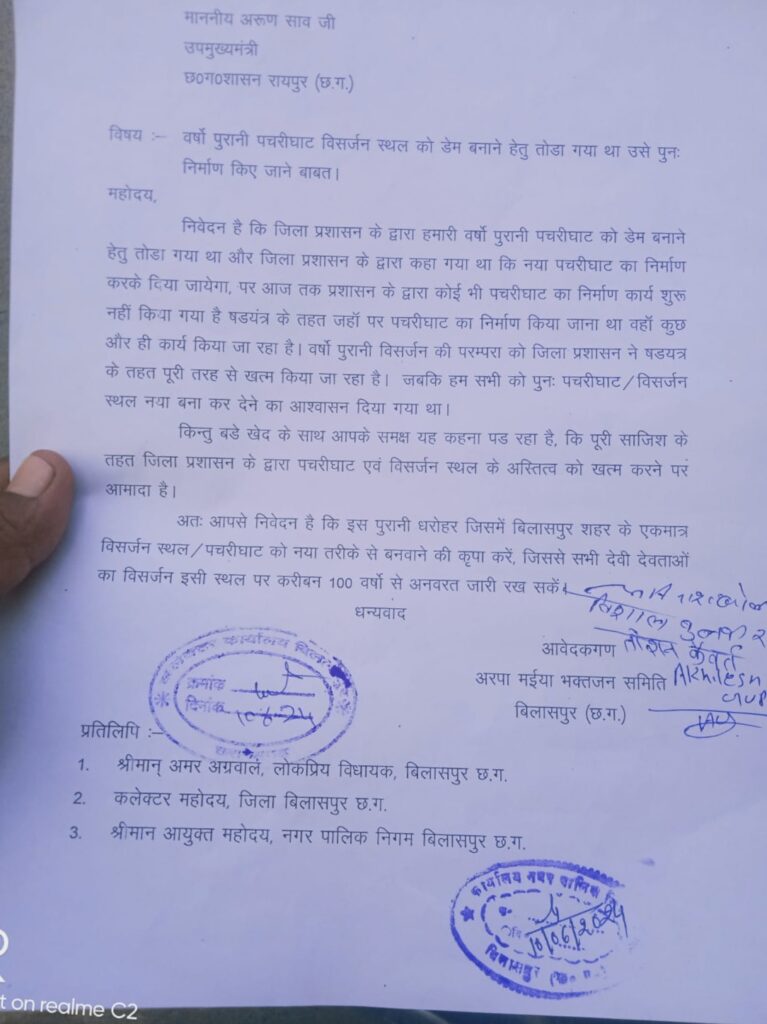 माननीय अरूण साव जी
उपमुख्यमंत्री
छ0ग0शासन रायपुर (छ.ग.)
विषय :– वर्षो पुरानी पचरीघाट विसर्जन स्थल को डेम बनाने हेतु तोडा गया था उसे पुनः
निर्माण किए जाने बाबत।
महोदय,
निवेदन है कि जिला प्रशासन के द्वारा हमारी वर्षो पुरानी पचरीघाट को डेम बनाने
हेतु तोडा गया था और जिला प्रशासन के द्वारा कहा गया था कि नया पचरीघाट का निर्माण
करके दिया जायेगा, पर आज तक प्रशासन के द्वारा कोई भी पचरीघाट का निर्माण कार्य शुरू
नहीं किया गया है षडयंत्र के तहत जहॉ पर पचरीघाट का निर्माण किया जाना था वहॉ कुछ
और ही कार्य किया जा रहा है। वर्षो पुरानी विसर्जन की परम्परा को जिला प्रशासन ने षडयत्र
के तहत पूरी तरह से खत्म किया जा रहा है। जबकि हम सभी को पुनः पचरीघाट/विसर्जन
स्थल नया बना कर देने का आश्वासन दिया गया था।
किन्तु बडे खेद के साथ आपके समक्ष यह कहना पड रहा है, कि पूरी साजिश के
तहत जिला प्रशासन के द्वारा पचरीघाट एवं विसर्जन स्थल के अस्तित्व को खत्म करने पर
आमादा है।
अतः आपसे निवेदन है कि इस पुरानी धरोहर जिसमें बिलासपुर शहर के एकमात्र
विसर्जन स्थल/पचरीघाट को नया तरीके से बनवाने की कृपा करें, जिससे सभी देवी देवताओं
का विसर्जन इसी स्थल पर करीबन 100 वर्षो से अनवरत जारी रख सकें।
धन्यवाद
आवेदकगण तोशन कैवर्त
अरपा मईया भक्तजन समिति Akhilesh
बिलासपुर (छ.ग.)
कलेक्टर कार्यालय
क्रमांक
दिनांक 10-6-24
प्रतिलिपि :–
1. श्रीमान् अमर अग्रवाल, लोकप्रिय विधायक, बिलासपुर छ.ग.
2. कलेक्टर महोदय, जिला बिलासपुर छ.ग.
3. श्रीमान आयुक्त महोदय, नगर पालिक निगम बिलासपुर छ.ग.
कार्यालय नगर पालिक
10/06/2024
बिलासपुर (छ.ग.)
t on realme C2